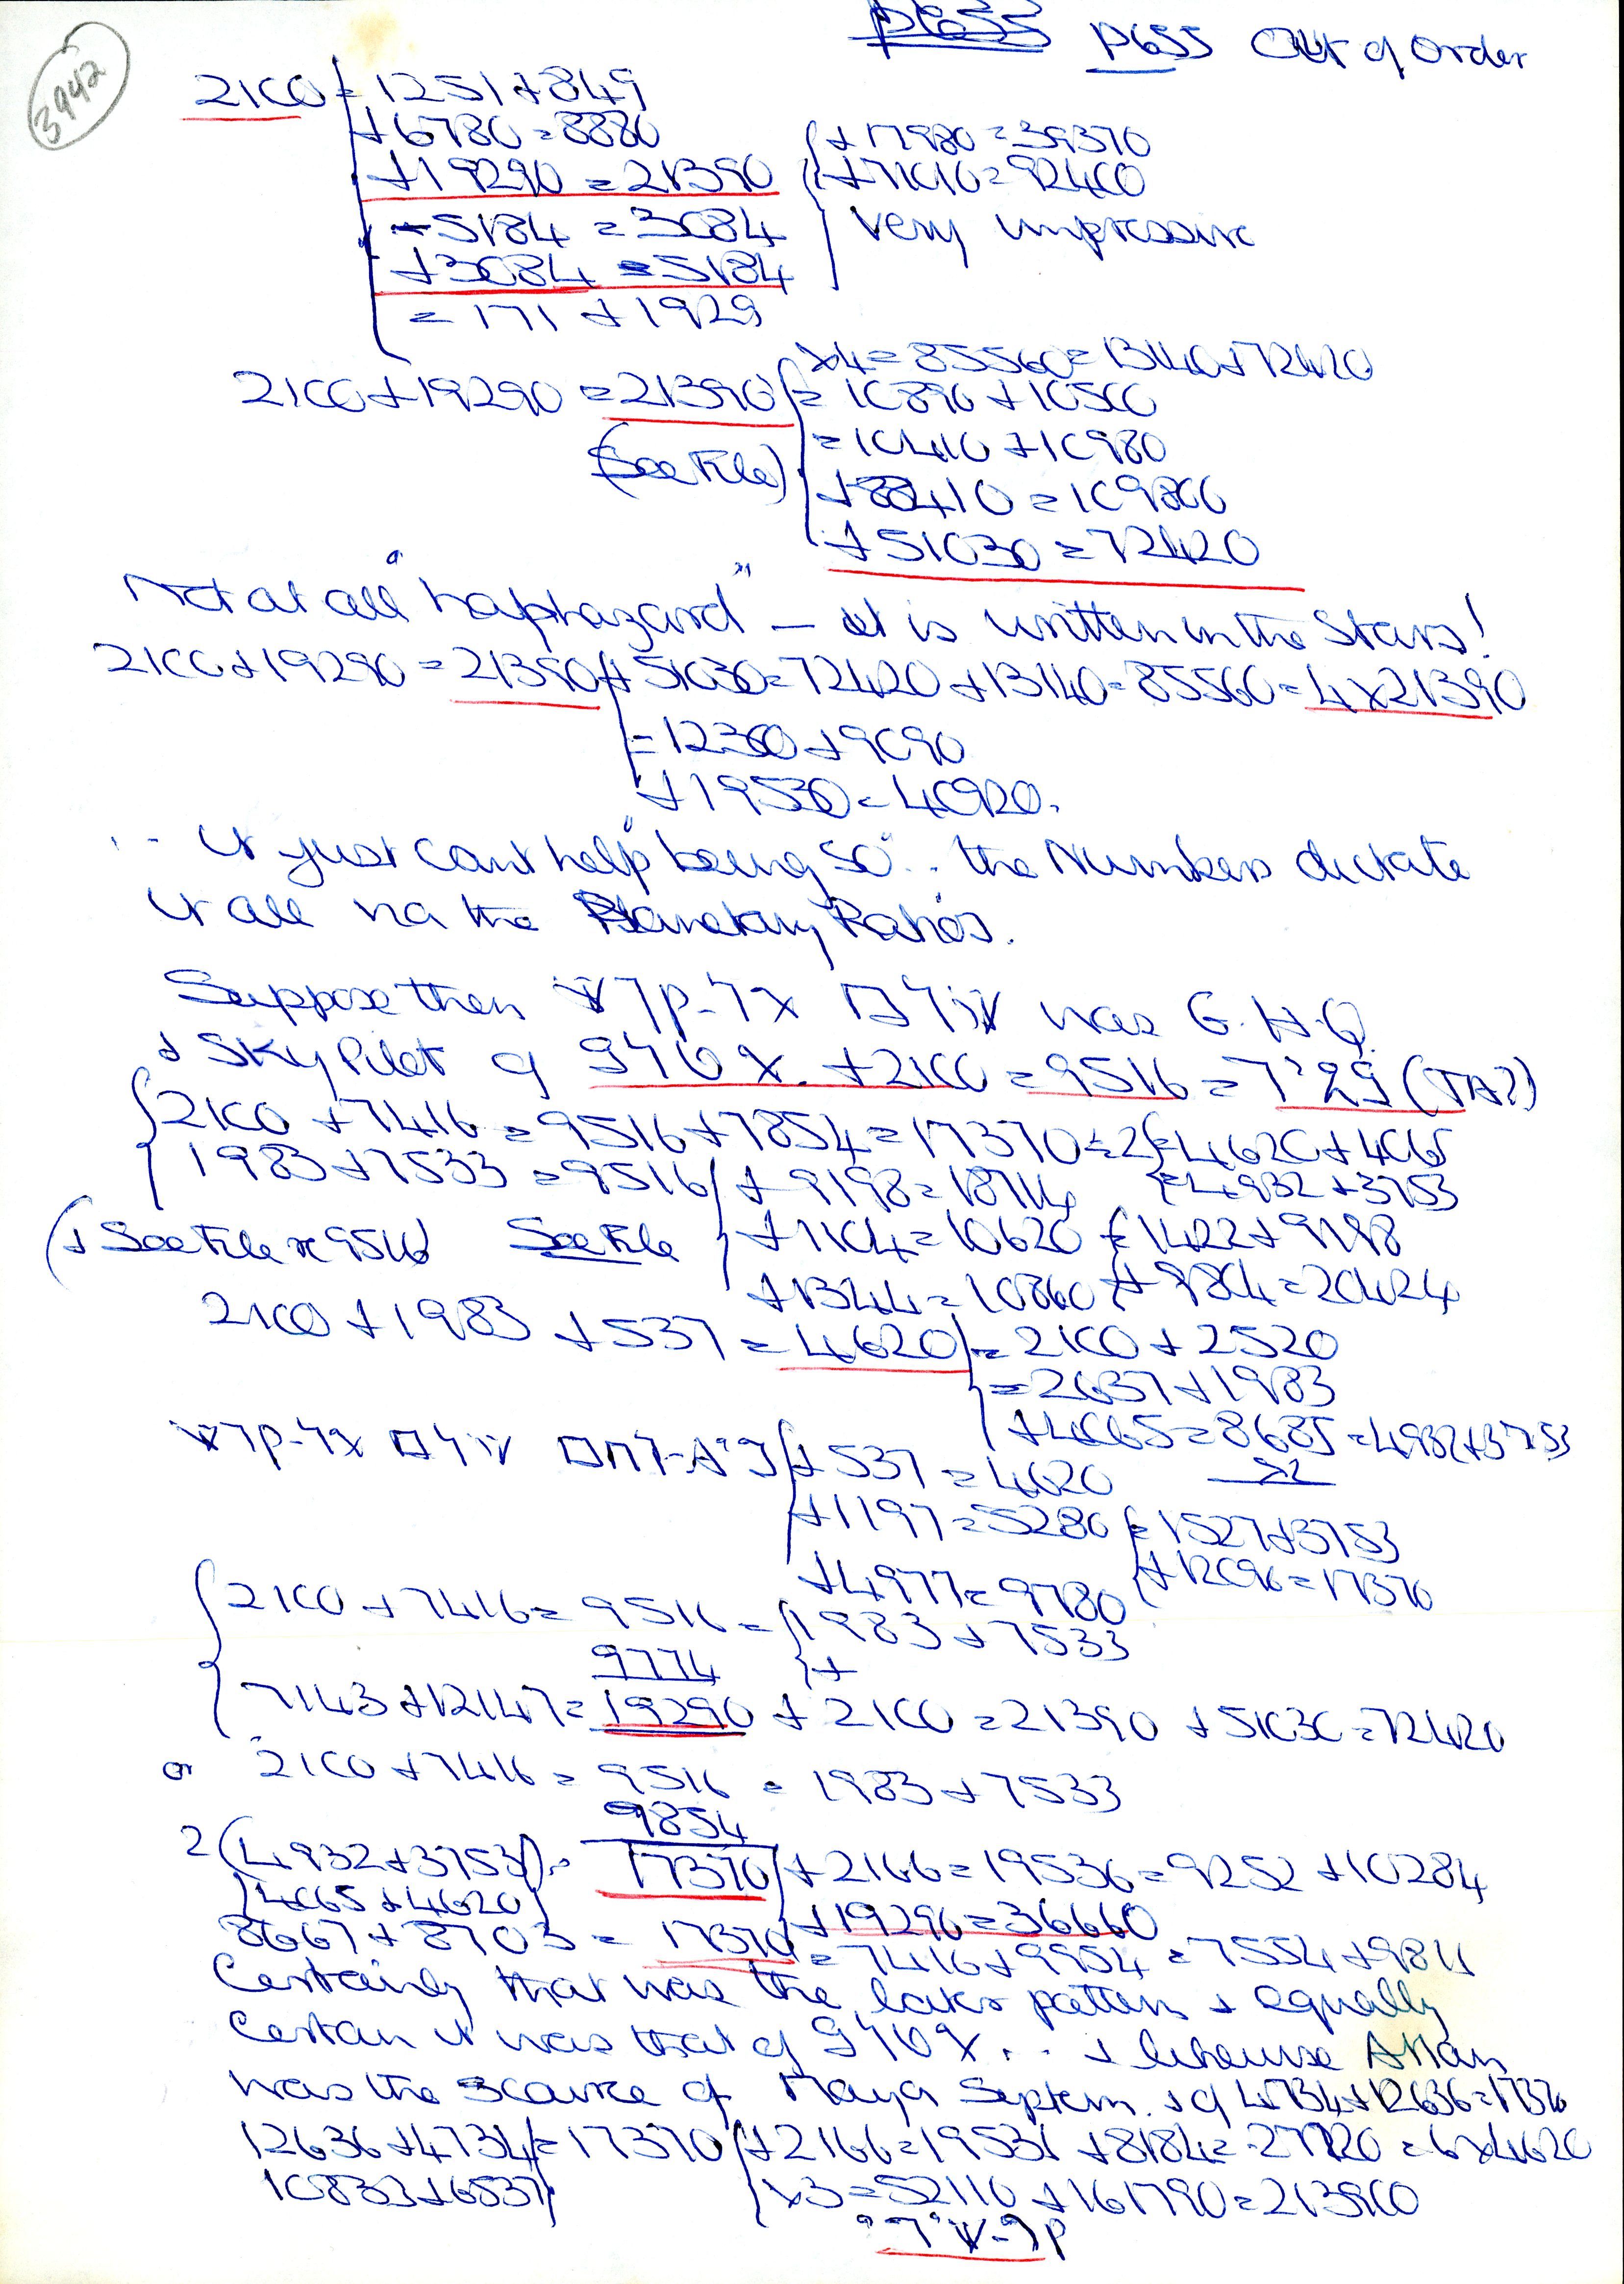 3942
P655 P655 Out of Order
2100 = 1251 + 849
+ 6780 = 8880
+ 19290 = 21390
- 5184 = 3084
+ 3084 = 5184
= 171 + 1929
+ 17980 = 39370
+ 71010 = 92400
Very impressive
2100 + 19290 = 21390
(See File)
x4 = 85560 = 13140 + 72420
= 10890 + 10500
= 10410 + 10980
+ 88410 = 109800
+ 51030 = 72420
Not at all "haphazard" — it is written in the Stars!
2100 + 19290 = 21390 + 51030 = 72420 + 13140 = 85560 = 4 x 21390
= 12300 + 9090
+ 19530 = 40920.
.. it just can't help "being so".. the Numbers dictate
it all via the Planetary Ratios.
Suppose then was G.H.Q.
+ Sky Pilot of + 2100 = 9516 = 7'29 (TA?)
2100 + 7416 = 9516 + 7854 = 17370 ÷ 2 = 4620 + 4065
= 4932 + 3753
1983 + 7533 = 9516 + 9198 = 18714
(+ See File x 9516) See File
+ 1104 = 10620 = 1422 + 9198
+ 1344 = 10860 + 9804 = 20424
2100 + 1983 + 537 = 4620 = 2100 + 2520
= 2637 + 1983
+ 4065 = 8685 = 4932 + 3753
x2
+ 537 = 4620
+ 1197 = 5280 = 1527 + 3753
+ 12096 = 17370
+ 4977 = 9780
2100 + 7416 = 9516 = 1983 + 7533
9774 +
7143 + 12147 = 19290 + 2100 = 21390 + 51030 = 72420
or 2100 + 7416 = 9516 = 1983 + 7533
9854
2(4932 + 3753) = 17370 + 2166 = 19536 = 9252 + 10284
(4065 + 4620) + 19290 = 36660
8667 + 8703 = 17370 = 7416 + 9954 = 7554 + 9816
Certainly that was the later pattern + equally
Certain it was that of .. + likewise Atlan
was the source of Maya System. + of 4734 + 12636 = 17370
12636 + 4734 = 17370 + 2166 = 19536 + 8184 = 27720 = 6 x 4620
10833 + 6537 x3 = 52110 + 161790 = 213900